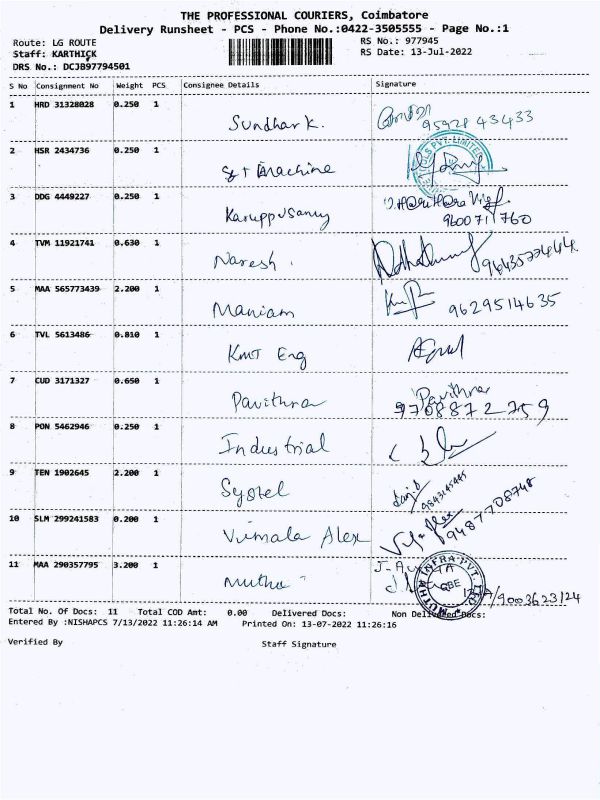 THE PROFESSIONAL COURIERS, Coimbatore
Delivery Runsheet - PCS - Phone No.:0422-3505555 - Page No.:1
Route: LG ROUTE
RS No.: 977945
Staff: KARTHICK
RS Date: 13-Jul-2022
DRS No.: DCJB97794501
S No Consignment No Weight PCS Consignee Details Signature
1 HRD 31328028 0.250 1
Sundhar K. 95928 43433
2 HSR 2434736 0.250 1
Machine
3 DDG 4449227 0.250 1
Karuppusamy
9600711760
4 TVM 11921741 0.630 1
Naresh.
5 MAA 565773439 2.200 1
Maniam 9629514635
6 TVL 5613486 0.810 1
KMT Eng
7 CUD 3171327 0.650 1
Pavithra Pavithra
9708872759
8 PON 5462946 0.250 1
Industrial
9 TEN 1902645 2.200 1
Systel 9843145445
10 SLM 299241583 0.200 1
Vimala Alex 9487708748
11 MAA 290357795 3.200 1
Mutha MUTHA INFRA PVT. LTD. CBE
9003623124
Total No. Of Docs: 11 Total COD Amt: 0.00 Delivered Docs: Non Delivered Docs:
Entered By :NISHAPCS 7/13/2022 11:26:14 AM Printed On: 13-07-2022 11:26:16
Verified By Staff Signature